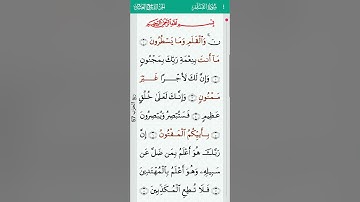 ١ سورة القلم الجزء التاسع والعشرون
بِسْمِ اللَّهِ الرَّحْمَٰنِ الرَّحِيمِ
نٓ ۚ وَالْقَلَمِ وَمَا يَسْطُرُونَ ١
مَا أَنتَ بِنِعْمَةِ رَبِّكَ بِمَجْنُونٍ
٢ وَإِنَّ لَكَ لَأَجْرًا غَيْرَ
مَمْنُونٍ ٣ وَإِنَّكَ لَعَلَىٰ خُلُقٍ
عَظِيمٍ ٤ فَسَتُبْصِرُ وَيُبْصِرُونَ
٥ بِأَييِّكُمُ الْمَفْتُونُ ٦ إِنَّ
رَبَّكَ هُوَ أَعْلَمُ بِمَن ضَلَّ عَن
سَبِيلِهِ وَهُوَ أَعْلَمُ بِالْمُهْتَدِينَ
٧ فَلَا تُطِعِ الْمُكَذِّبِينَ